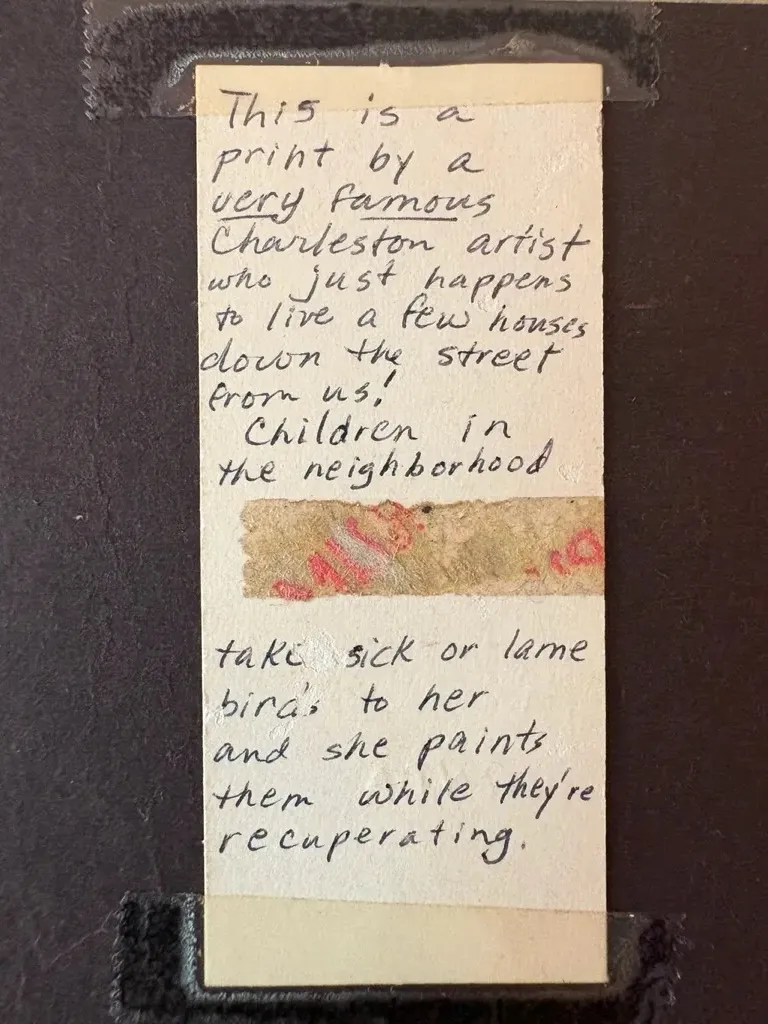 This is a
print by a
very famous
Charleston artist
who just happens
to live a few houses
down the street
from us!
Children in
the neighborhood
take sick or lame
birds to her
and she paints
them while they're
recuperating.